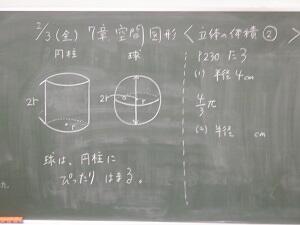 2/3(金) 7章 空間図形 〈立体の体積②〉
円柱
球
2r
r
2r
r
球は、円柱に
ぴったり はまる。
P230 たろ
(1) 半径 4cm
4/3 π
(2) 半径 cm